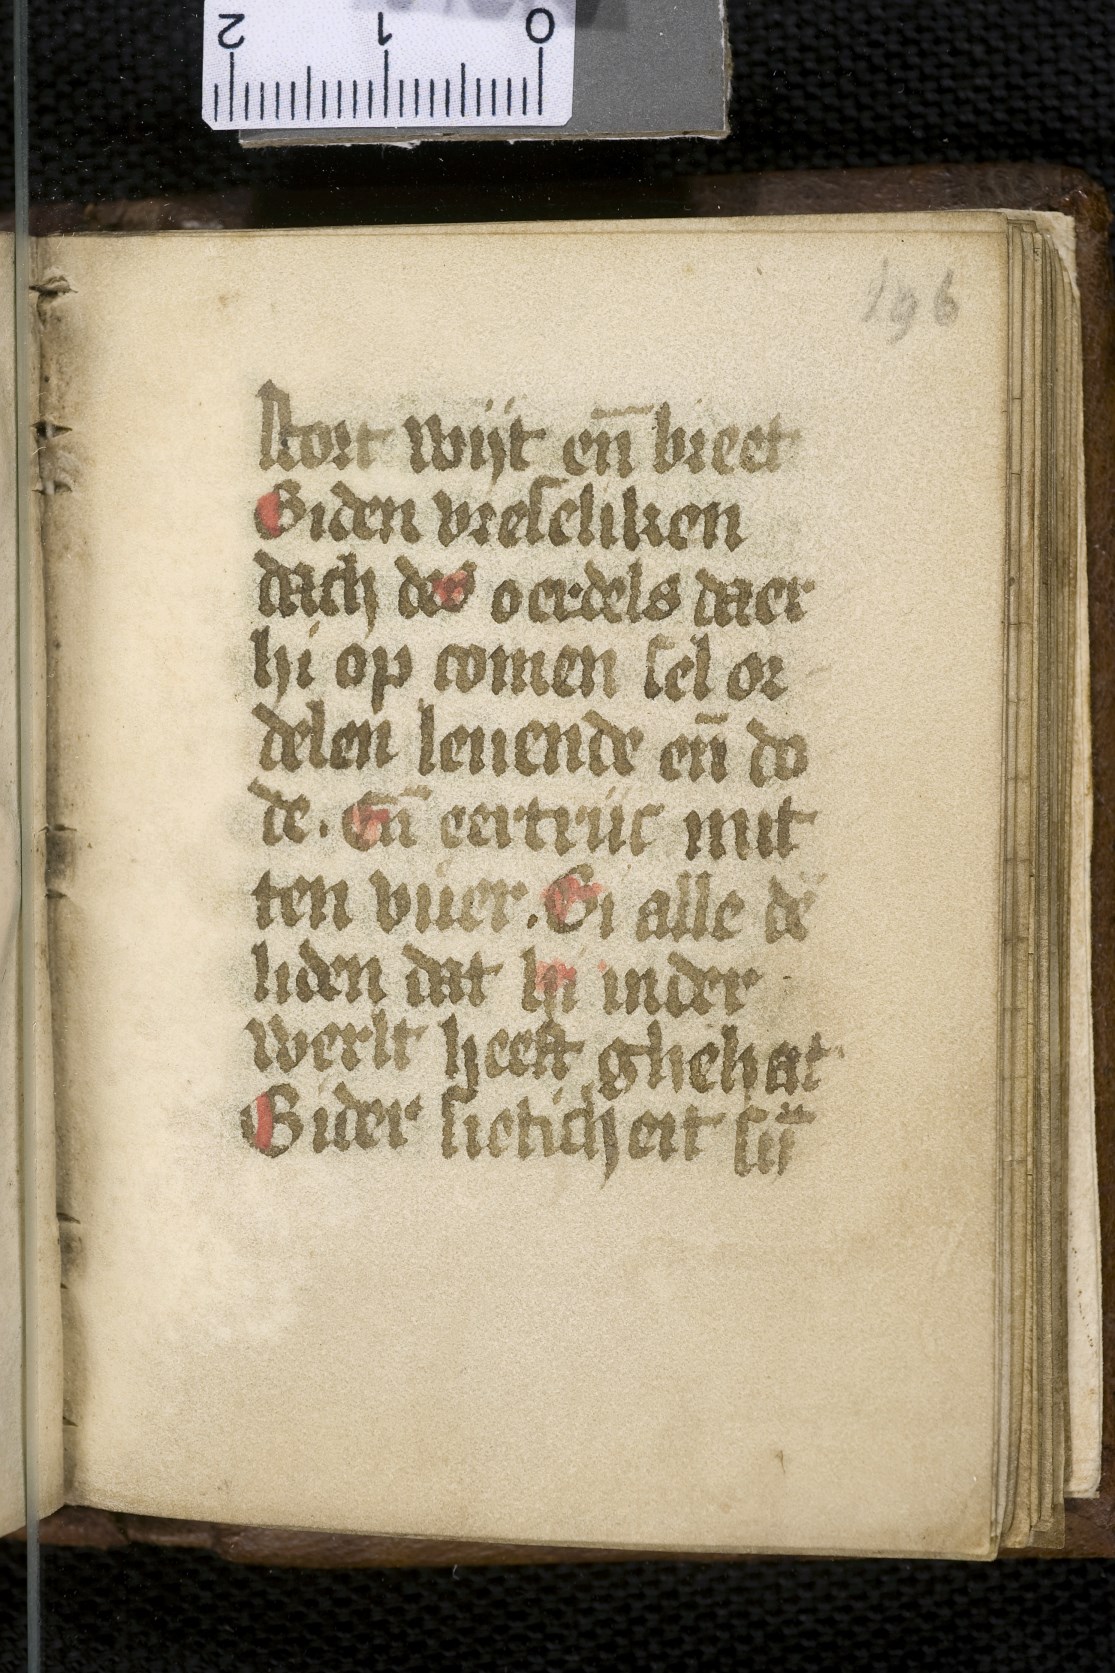 2 1 0
196
kort wijt en̄ breet
Biden vreseliken
dach des oerdels daer
hi op comen sel or
delen leuende en̄ do
de. En̄ eertrijc mit
ten vuer. Bi alle dē
liden dat hi in der
werlt heeft ghehat
Bider sieticheit sijn̄